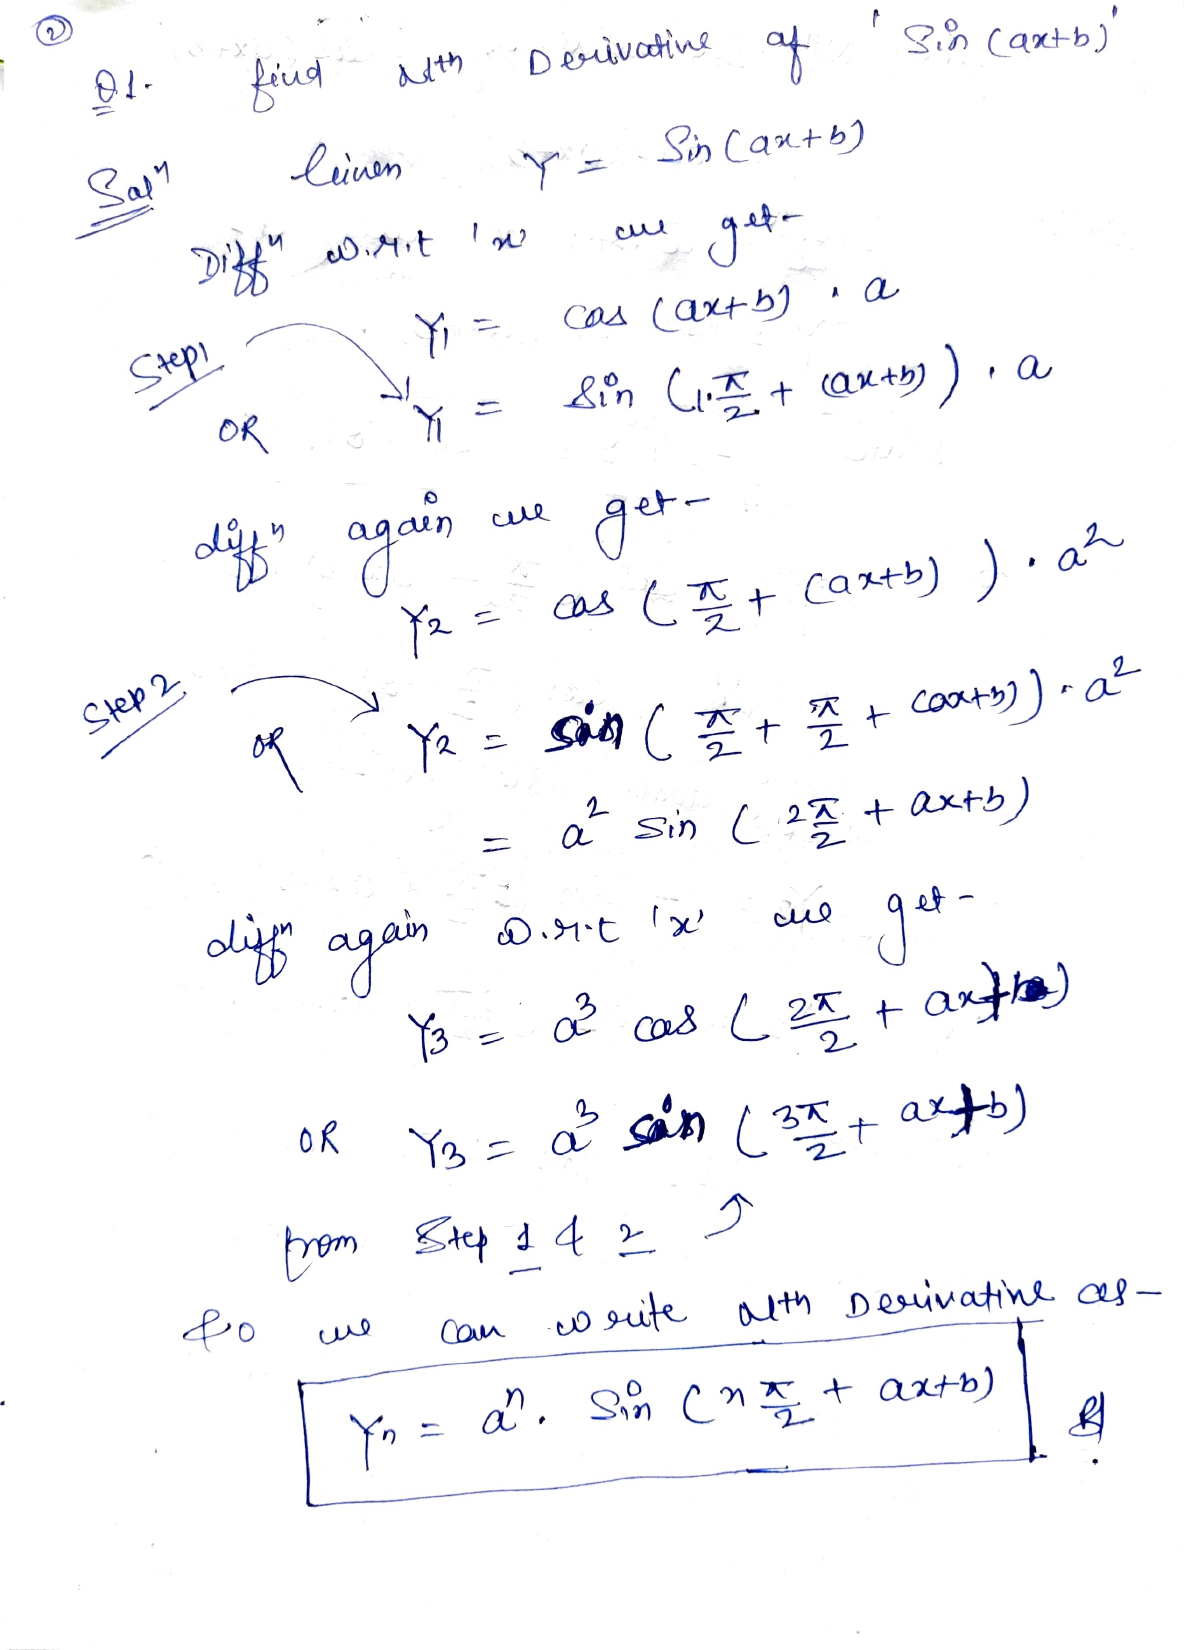 ②
Q1. find nth Derivative of 'Sin (ax+b)'
Solⁿ Given Y = Sin (ax+b)
Diffⁿ w.r.t 'x' we get-
Y₁ = cos (ax+b) . a
Step 1
OR Y₁ = Sin (1.π/2 + (ax+b)) . a
diffⁿ again we get-
Y₂ = cos (π/2 + (ax+b)) . a²
Step 2
OR Y₂ = sin (π/2 + π/2 + (ax+b)) . a²
= a² sin (2π/2 + ax+b)
diffⁿ again w.r.t 'x' we get-
Y₃ = a³ cos (2π/2 + ax+b)
OR Y₃ = a³ sin (3π/2 + ax+b)
from Step 1 & 2
So we can write nth Derivative as-
Yₙ = aⁿ. Sin (nπ/2 + ax+b)